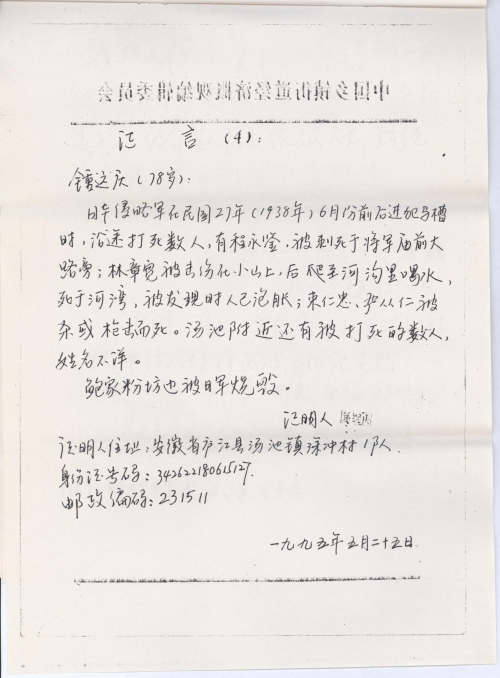 中国乡镇街道经济概观编辑委员会
证 言 (4):
鍾运庆(78岁):
日本侵略军在民国27年(1938年)6月份前后进犯马槽
时,沿途打死数人,有程永鉴,被刺于将军庙前大
路旁;林章宽被击伤在小山上,后爬至河沟里喝水,
死于河湾,被发现时人已泡胀;束仁忠、 从仁被
杀或枪击而死。汤池附近还有被打死的数人,
姓名不详。
鲍家粉坊也被日军烧毁。
证明人
证明人住址:安徽省庐江县汤池镇深冲村1队.
身份证号码:342622180615127.
邮政编码:231511
一九九五年五月二十五日